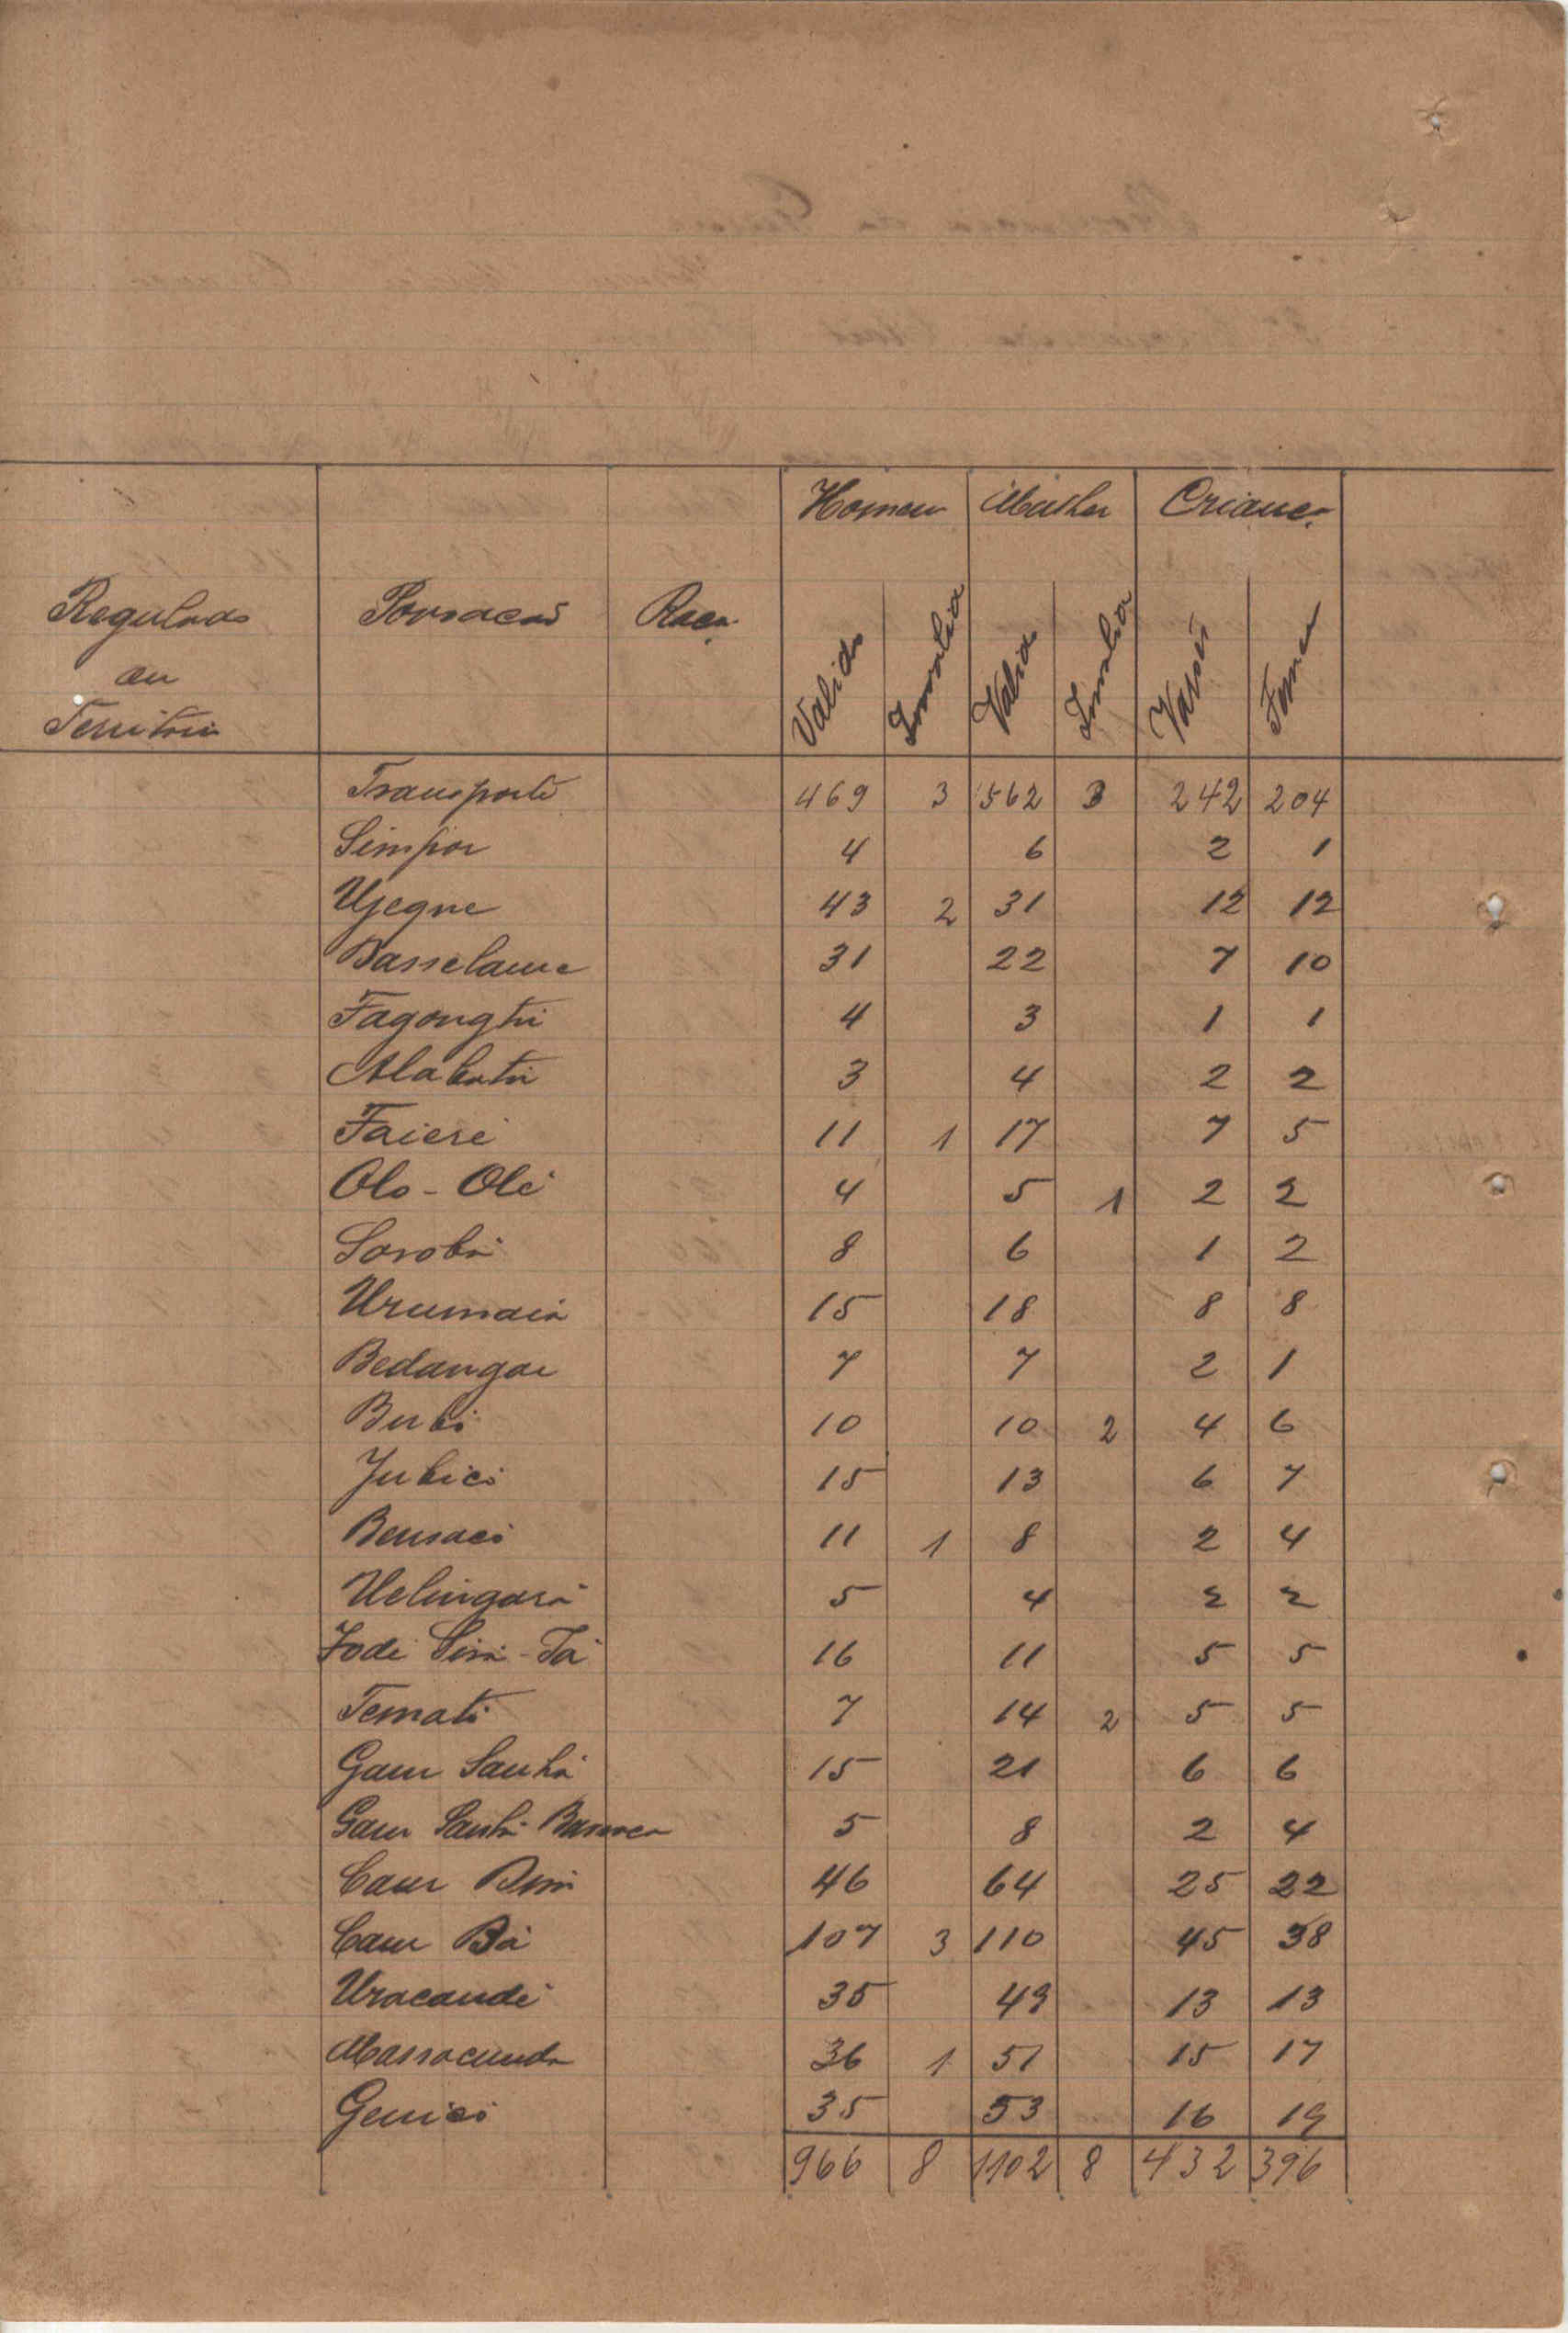 Homem Mulher Criança
Regulado Povoacão Raça
ou
Territorio
Valido Invalid Valido Invalid Varão Femea
Transporte 469 3 562 3 242 204
Simpor 4 6 2 1
Ujeque 43 2 31 12 12
Basselame 31 22 7 10
Fagongtu 4 3 1 1
3 4 2 2
Faieré 11 1 17 7 5
Olo - Olé 4 5 1 2 2
Sorobá 8 6 1 2
Urumaiá 15 18 8 8
Bedangar 7 7 2 1
Bubi 10 10 2 4 6
Jubici 15 13 6 7
Bensaci 11 1 8 2 4
Uelingará 5 4 2 2
Jode Siná - Tá 16 11 5 5
Temati 7 14 2 5 5
Gam Sanhá 15 21 6 6
Gam Sanhá 5 8 2 4
Cam 46 64 25 22
Cam Bá 107 3 110 45 38
Uracandé 35 49 13 13
Massacunda 36 1 51 15 17
Genici 35 53 16 19
966 8 1102 8 432 396